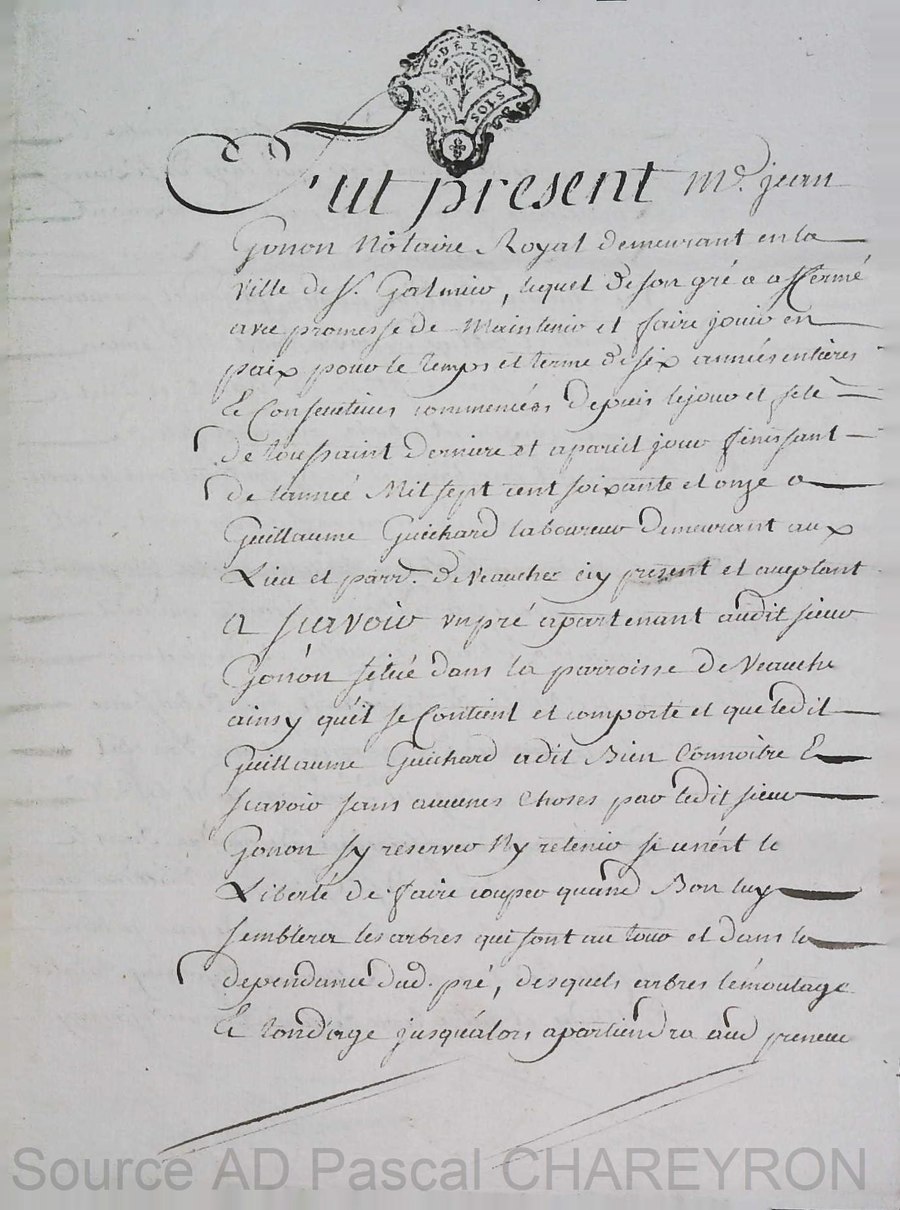 G. DE LYON
DEUX SOLS
Fut present me. jean
Gonon Nôtaire Royal demeurant en la
ville de St. Galmier, lequel de son gré a affermé
avec promesse de Maintenir et faire jouir en
paix pour le temps et terme de six années entieres
Et Consecutives commencées depuis le jour et fete
de toussaint derniere et a pareil jour finissant
de l'année Mil sept cent soixante et onze a
Guillaume Guichard laboureur demeurant aux
Lieu et parr. de Veauche icy present et aceptant
a scavoir un pré apartenant audit sieur
Gonon situé dans la parroisse de Veauche
ainsy qu'il se Contient et comporte et que ledit
Guillaume Guichard a dit Bien Connoitre Et
scavoir sans aucunes Choses par ledit sieur
Gonon s'y reserver Ny retenir si ce n'est le
Liberté de faire couper quand Bon luy
semblera les arbres qui sont au tour et dans le
dependance dud. pré, desquels arbres l'émoutage
Et tondage jusqu'alors apartiendra aud preneur
Source AD Pascal CHAREYRON